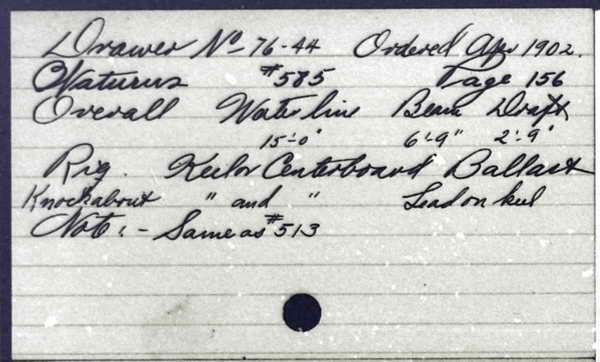 Drawer No 76-44 Ordered Apr 1902.
Naturus #585 Page 156
Overall Water line Beam Draft
15'-0" 6'-9" 2'-9"
Rig. Keel or Centerboard Ballast
Knockabout " and " Lead on keel
Note:- Same as #513